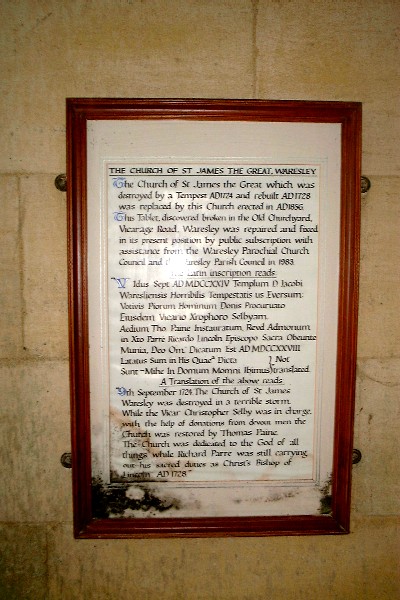 THE CHURCH OF ST JAMES THE GREAT, WARESLEY
The Church of St James the Great which was
destroyed by a Tempest AD1724 and rebuilt AD1728
was replaced by this Church erected in AD1856.
This Tablet, discovered broken in the Old Churchyard,
Vicarage Road, Waresley was repaired and fixed
in its present position by public subscription with
assistance from the Waresley Parochial Church
Council and the Waresley Parish Council in 1983.
The Latin inscription reads
V Idus Sept AD MDCCXXIV Templum D Jacobi
Waresliensis Horribilis Tempestatis us Eversum:
Votivis Piorum Hominum Donis Procurato
Ejusdem Vicario Xrophoro Selbyam.
Aedium Tho Paine Instauratum, Revd Admonum
in Xto Parre Ricardo Lincoln Episcopo Sacra Obeunte
Munia, Deo Om: Dicatum Est AD MDCCXXVIII
Latatus Sum in His Quae Dicta } Not
Sunt ~ Mihe In Domum Momni Ibimus } translated.
A Translation of the above reads
9th September 1724. The Church of St James
Waresley was destroyed in a terrible storm.
While the Vicar Christopher Selby was in charge,
with the help of donations from devout men the
Church was restored by Thomas Paine.
The Church was dedicated to the God of all
things while Richard Parre was still carrying
out his sacred duties as Christ's Bishop of
Lincoln AD 1728"